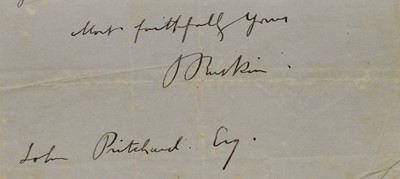 Most faithfully Yours
J Ruskin.
John Pritchard. Esq.